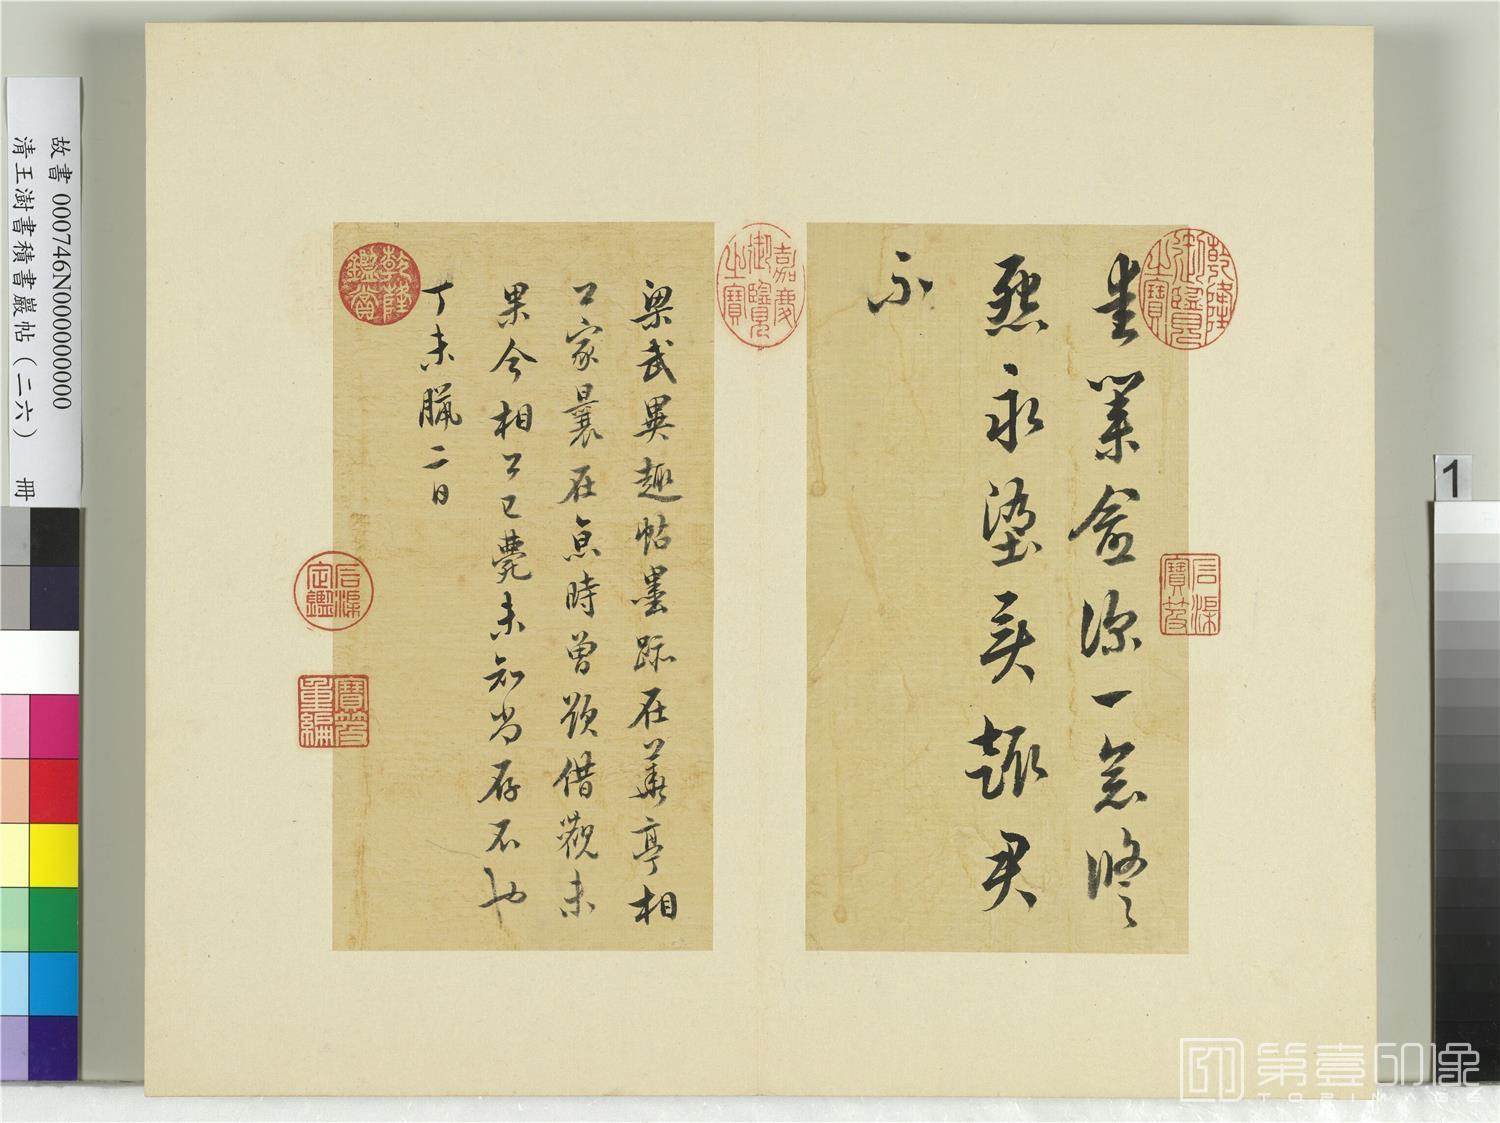 愛業愈深一念修
怨永墮異趣君
不
梁武異趣帖墨跡在華亭相
公家曩在京時曾欲借觀未
果今相公已薨未知尚存否也
丁未臘二日
乾隆御覽之寶
石渠寶笈
嘉慶御覽之寶
乾隆鑑賞
石渠定鑑
寶笈重編
故書 000746N000000000
清王澍書積書巖帖(二六) 冊
1
第壹印像